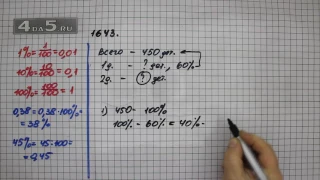 4DA5.RU
1643.
1% = 1/100 = 0,01
10% = 10/100 = 0,1
100% = 100/100 = 1
0,38 = 0,38·100% =
= 38%
45% = 45:100 =
= 0,45
Всего - 450 дет.
1д. - ? дет., 60%
2д. - ? дет.
1) 450 - 100%
100% - 60% = 40% -